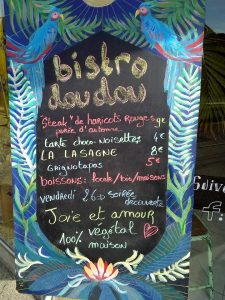 bistro
doudou
Steak de haricots Rouges 9€
purée d'automne
tarte choco-noisettes 4€
LA LASAGNE 8€
Grignotapas 5€
boissons: locale/bio/maisons
vendredi 26 → soirée
découverte
Joie et amour
100% végétal
maison